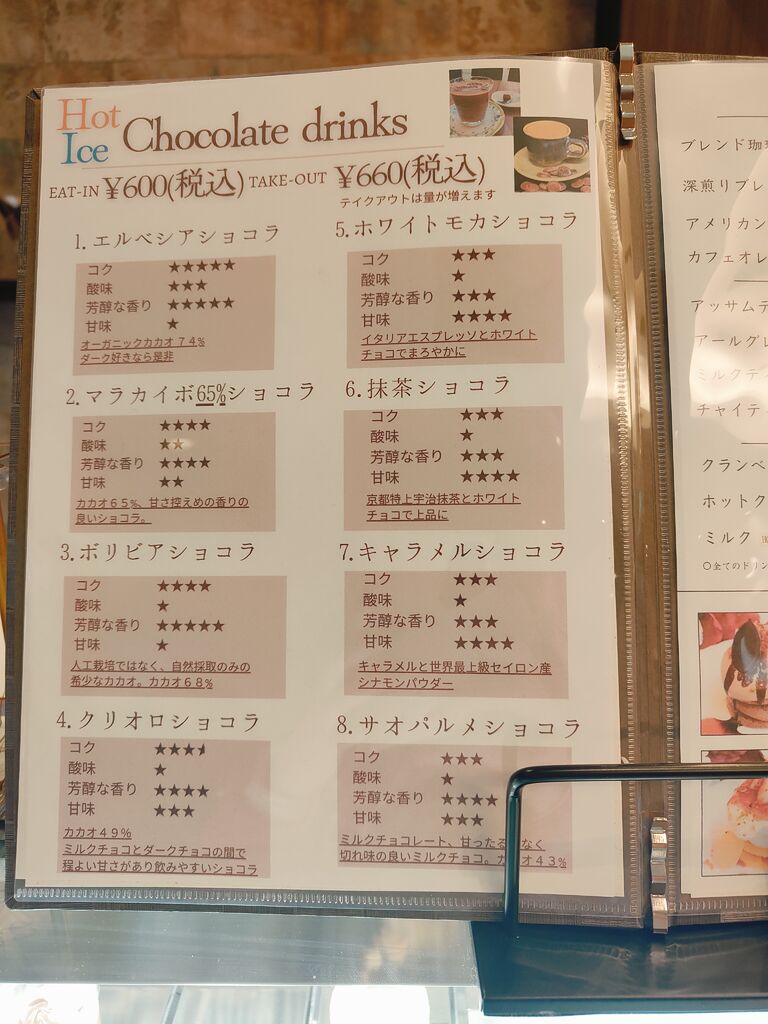 Hot
Ice Chocolate drinks
EAT-IN ¥600(税込) TAKE-OUT ¥660(税込)
テイクアウトは量が増えます
1.エルベシアショコラ
コク ★★★★★
酸味 ★★★
芳醇な香り ★★★★★
甘味 ★
オーガニックカカオ 74%
ダーク好きなら是非
2.マラカイボ65%ショコラ
コク ★★★★
酸味 ★★
芳醇な香り ★★★★
甘味 ★★
カカオ65%、甘さ控えめの香りの
良いショコラ。
3.ボリビアショコラ
コク ★★★★
酸味 ★
芳醇な香り ★★★★★
甘味 ★
人工栽培ではなく、自然採取のみの
希少なカカオ。カカオ68%
4.クリオロショコラ
コク ★★★⯨
酸味 ★
芳醇な香り ★★★★
甘味 ★★★
カカオ49%
ミルクチョコとダークチョコの間で
程よい甘さがあり飲みやすいショコラ
5.ホワイトモカショコラ
コク ★★★
酸味 ★
芳醇な香り ★★★
甘味 ★★★★
イタリアエスプレッソとホワイト
チョコでまろやかに
6.抹茶ショコラ
コク ★★★
酸味 ★
芳醇な香り ★★★
甘味 ★★★★
京都特上宇治抹茶とホワイト
チョコで上品に
7.キャラメルショコラ
コク ★★★
酸味 ★
芳醇な香り ★★★
甘味 ★★★★
キャラメルと世界最上級セイロン産
シナモンパウダー
8.サオパルメショコラ
コク ★★★
酸味 ★
芳醇な香り ★★★★
甘味 ★★★
ミルクチョコレート、甘ったる なく
切れ味の良いミルクチョコ。カ オ43%
ブレンド珈
深煎りブレ
アメリカン
カフェオレ
アッサムテ
アールグレ
ミルクティ
チャイティ
クランベ
ホットク
ミルク
○全てのドリン